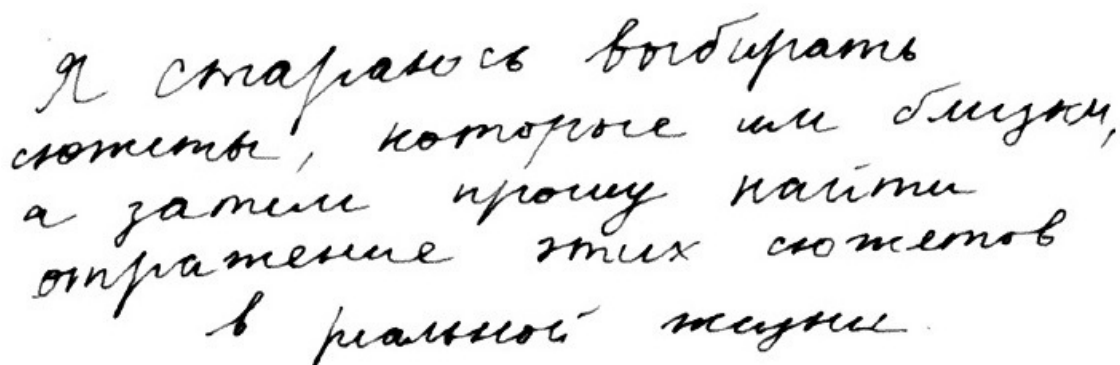 Я стараюсь выбирать
сюжеты, которые им близки,
а затем прошу найти
отражение этих сюжетов
в реальной жизни.